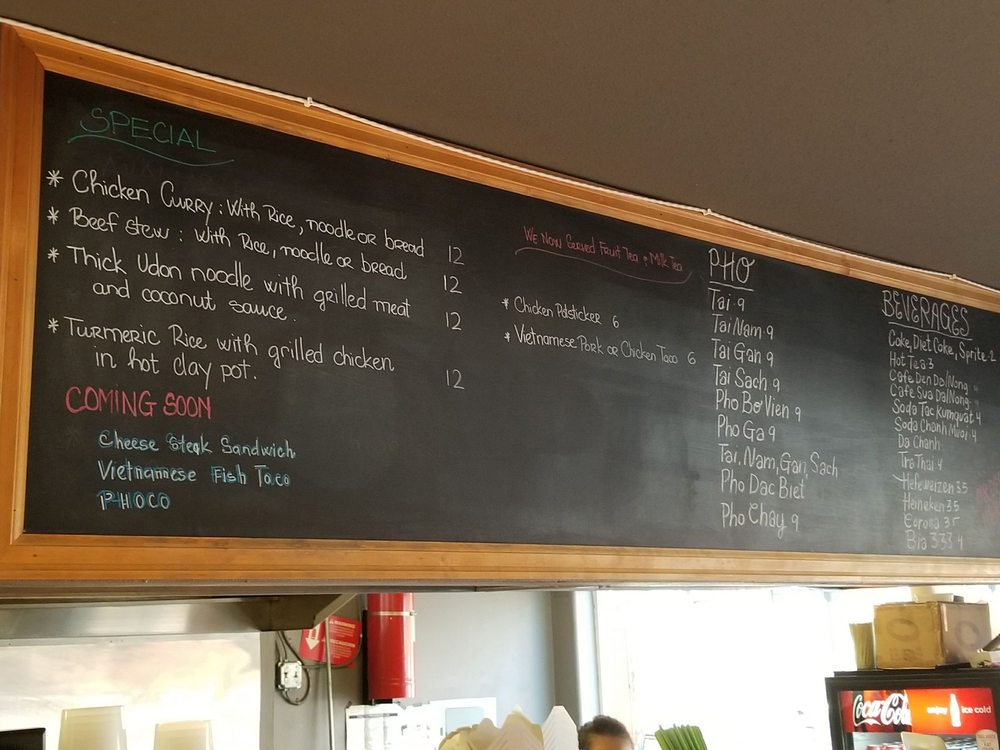 SPECIAL
* Chicken Curry : With Rice, noodle or bread 12
* Beef stew : With Rice, noodle or bread 12
* Thick Udon noodle with grilled meat 12
and coconut sauce.
* Turmeric Rice with grilled chicken
in hot clay pot. 12
COMING SOON
Cheese Steak Sandwich
Vietnamese Fish Taco
PHOCO
We Now Served Fruit Tea & Milk Tea
* Chicken Potsticker 6
* Vietnamese Pork or Chicken Taco 6
PHO
Tai 9
Tai Nam 9
Tai Gan 9
Tai Sach 9
Pho Bo Vien 9
Pho Ga 9
Tai, Nam, Gan, Sach
Pho Dac Biet
Pho Chay 9
BEVERAGES
Coke, Diet Coke, Sprite - 2
Hot Tea 3
Cafe Den Da/Nong
Cafe Sua Da/Nong
Soda Tac Kumquat 4
Soda Chanh Muoi 4
Da Chanh
Tra Thai 4
Hefeweizen 3.5
Heineken 3.5
Corona 3.5
Bia 333 4
Coca-Cola
enjoy
ice cold